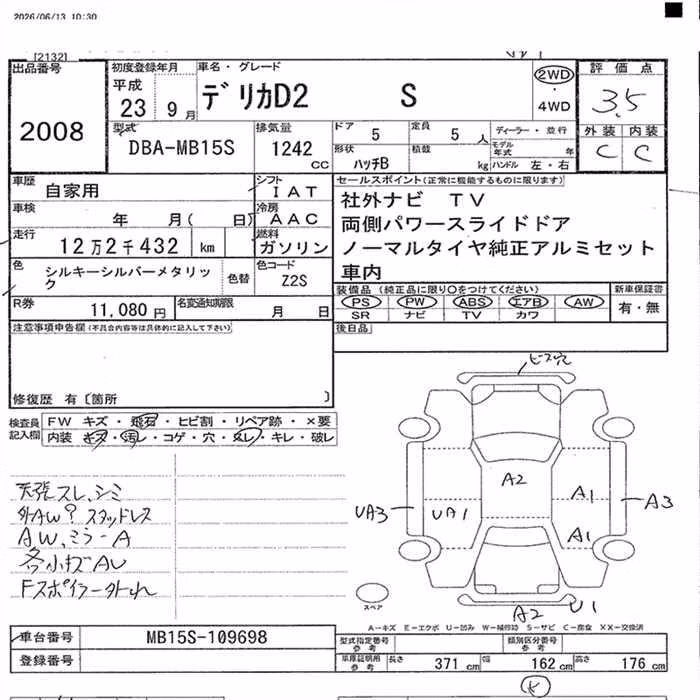 2026/06/13 10:30
[2132]
出品番号
2008
初度登録年月
平成
23 9 月
車名・グレード
デリカD2 S
2WD
・
4WD
評価点
3.5
外装 内装
C C
型式
DBA-MB15S
排気量
1242
CC
ドア 5
定員 5 人
ディーラー・並行
モデル年式 年
形状 ハッチB
積載 kg
ハンドル 左・右
車歴
自家用
シフト
IAT
車検
年 月( 日)
冷房
AAC
走行
12万2千432 km
燃料
ガソリン
色
シルキーシルバーメタリック
色替
色コード
Z2S
R券
11,080 円
名変通知期限
月 日
セールスポイント(正常に機能するものに限ります)
社外ナビ TV
両側パワースライドドア
ノーマルタイヤ純正アルミセット
車内
装備品(純正品に限り○をつけてください)
PS PW ABS エアB AW
SR ナビ TV カワ
新車保証書
有・無
後日品
注意事項申告欄(不具合内容等は具体的に記入して下さい)
修復歴 有〔箇所 〕
検査員
記入欄
FW キズ・飛石・ヒビ割・リペア跡・×要
内装 キズ・汚レ・コゲ・穴・スレ・キレ・破レ
天張スレ、シミ
外AW? スタッドレス
AW、ミラーA
各小キズAU
Fスポイラー外れ
ビス穴
A2
UA3
UA1
A1
A3
A1
A2
U1
スペア
A-キズ E-エクボ U-凹み W-補修跡 S-サビ C-腐食 XX-交換済
車台番号
MB15S-109698
登録番号
型式指定番号
参考
類別区分番号
参考
車庫証明用
参考
長さ 371 cm
幅 162 cm
高さ 176 cm